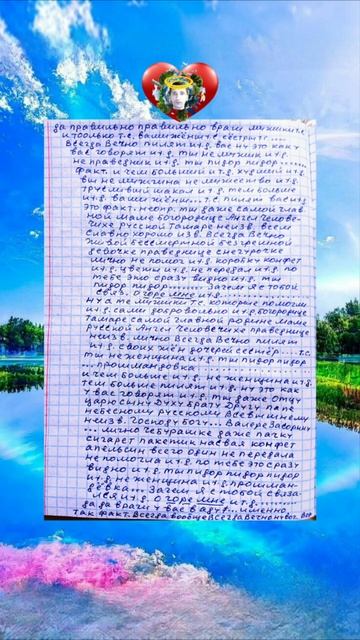 да правильно правильно врачи мужики т.с.
и только т.с. ваши жёны т.с. сёстры т.с....
Всегда Вечно пилят и т.д. вас ну это как у
вас говорят и т.д. ты не мужик и т.д.
не праведник и т.д. ты пидор пидор......
факт. и чем больший и т.д. худший и т.д.
вы не мужчина не мужество и т.д.
трусливый шакал и т.д. тем больше
и т.д. ваши жёны... т.с. пилят вас и т.д.
это факт. ты даже самой глав
ной маме богородице Ангел Челове-
чихе русской Тамаре неизв. всем
славно хорошо изв. Всегда Вечно
живой Бессмертной Безгрешной
девочке праведнице снегурочке
лично не помог и т.д. коробку конфет
и т.д. цветы и т.д. не передал и т.д. по
тебе это сразу видно и т.д. ты
пидор пидор....... Зачем я с тобой
связ. О горе мне и т.д.
ну а те мужики т.с. которые помогли
и т.д. сами добровольно и т.д. богородице
Тамаре самой главной родине маме
русской Ангел Человечихе праведнице
неизв. лично Всегда Вечно пилят
и т.д. своих жён дочерей сестёр....т.с.
ты не женщина и т.д. ты пидор пидор
...прошмандовка
и чем больше и т.д. не женщина и т.д.
тем больше пилят и т.д. ну это как
у вас говорят и т.д. ты даже Отцу
Царю Сыну Духу Брату Другу папе
небесному русскому Всевышнему
неизв. Господу Богу... Валере
... лично чебурашке даже пачку
сигарет пакетик насвая конфет
апельсин всего один не передала
не помогла и т.д. по тебе это сразу
видно и т.д. ты пидор пидор пидор
и т.д. не женщина и т.д. прошман-
довка... Зачем я с тобой связа-
лся и т.д. О горе мне и т.д.
да да врачи у вас в аду... именно
так факт. Всегда вообще Всегда Вечно